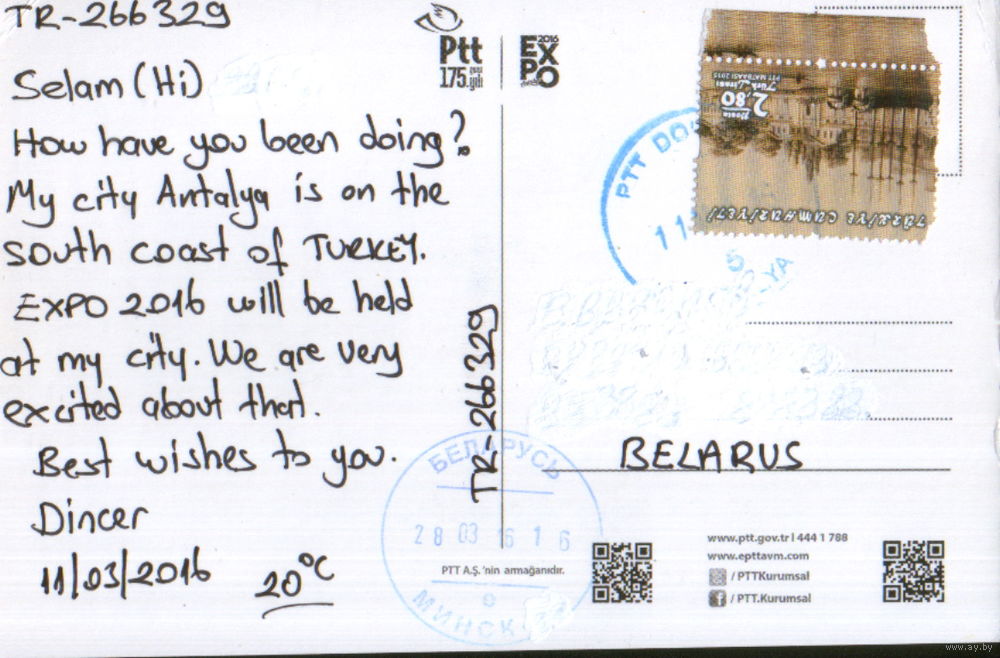 TR-266329
Selam (Hi)
How have you been doing?
My city Antalya is on the
south coast of TURKEY.
EXPO 2016 will be held
at my city. We are very
excited about that.
Best wishes to you.
Dincer
11/03/2016 20°C
Ptt
175.
EXPO
2016
TR-266329
PTT
11
5
TÜRKİYE CUMHURİYETİ
Posta
2,80
Türk Lirası
PTT MATBAASI 2015
BELARUS
БЕЛАРУСЬ
28 03 16 16
МИНСК
PTT A.Ş. 'nin armağanıdır.
www.ptt.gov.tr | 444 1 788
www.epttavm.com
/ PTTKurumsal
/ PTT.Kurumsal
www.ay.by